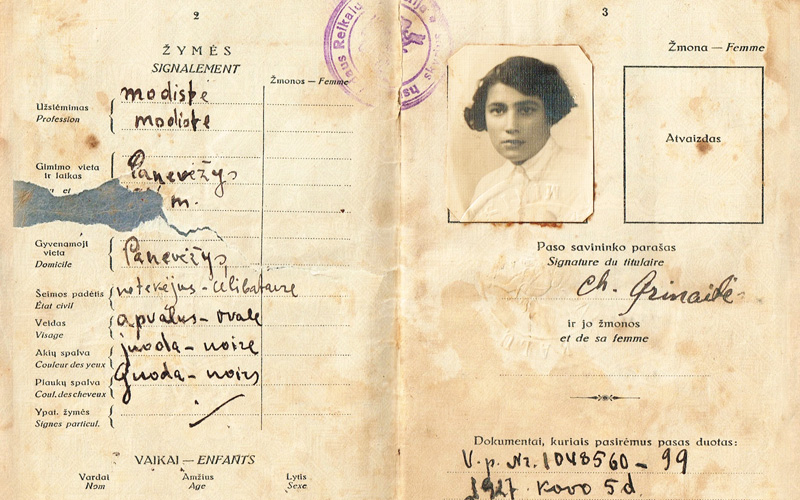 2
ŽYMĖS
SIGNALEMENT
Žmonos — Femme
Užsiėmimas
Profession
modiste
modiste
Gimimo vieta
ir laikas
Panevėžys
m.
Gyvenamoji
vieta
Domicile
Panevėžys
Šeimos padėtis
État civil
netekėjus - celibataire
Veidas
Visage
apvalus - ovale
Akių spalva
Couleur des yeux
juoda - noire
Plaukų spalva
Coul. des cheveux
juoda - noirs
Ypat. žymės
Signes particul.
VAIKAI — ENFANTS
Vardai
Nom
Amžius
Age
Lytis
Sexe
3
Žmona — Femme
Atvaizdas
Paso savininko parašas
Signature du titulaire
Ch. Grinaitė
ir jo žmonos
et de sa femme
Dokumentai, kuriais pasirėmus pasas duotas:
V.p. Nr. 1048560 - 99
1927 . Kovo 5 d.